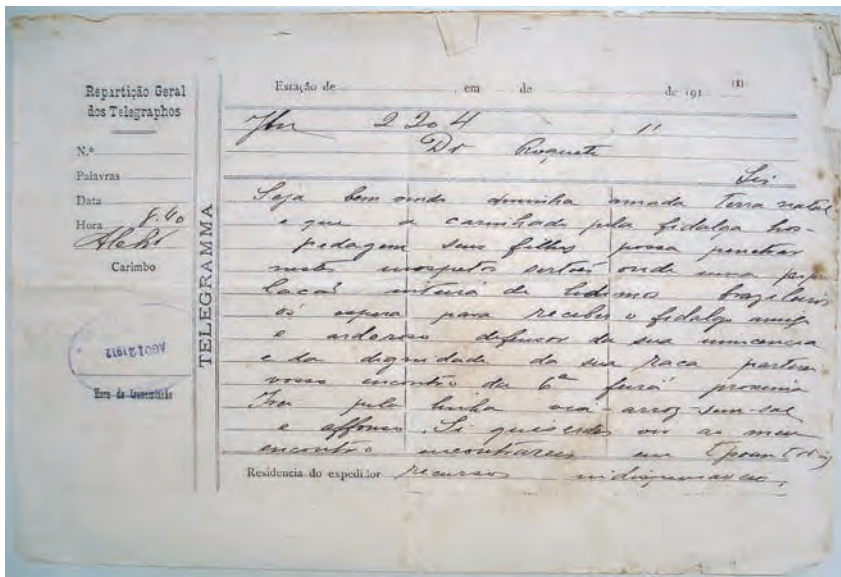 Repartição Geral
dos Telegraphos
N.º
Palavras
Data
Hora 8.40
Carimbo
AGO 12 1912
Hora da transmissão
TELEGRAMMA
Estação de , em de de 191 (1)
2204 11
Dr Roquette
Seja bem vindo a minha amada Terra natal
e que a carinhada pela fidalga hos-
pedagem seus filhos possa penetrar
nestes inospitos sertões onde uma popu
lacaõ inteira de lidimos brazileiros
os espera para receber o fidalgo amigo
e ardoroso defensor da sua innocencia
e da dignidade da sua raca partirei
vosso encontro da 6ª feira proxima
Irei pela linha via arroz-sem-sal
e affonso. Si quiserdes vir ao meu
encontro encontrareis em
Residencia do expedidor recursos